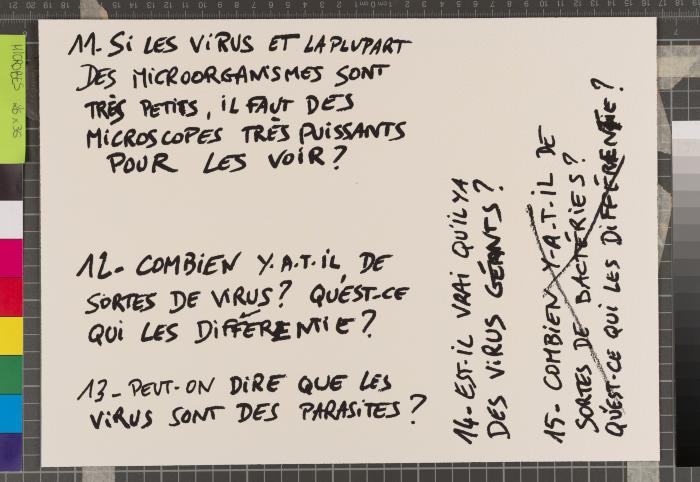 11- Si LES ViRUS ET LA PLUPART
DES MiCROORGANiSMES SONT
TRÈS PETiTS, iL FAUT DES
MiCROSCOPES TRÈS PUiSSANTS
POUR LES VOiR ?
12- COMBiEN Y.A.T.iL DE
SORTES DE ViRUS ? QU'EST-CE
QUi LES DiFFÉRENTiE ?
13- PEUT-ON DiRE QUE LES
ViRUS SONT DES PARASiTES ?
14- EST-iL VRAi QU'iL YA
DES ViRUS GÉANTS ?
15- COMBiEN Y-A-T-iL DE
SORTES DE BACTÉRiES ?
QU'EST-CE QUi LES DiFFÉRENTiE ?
MICROBES